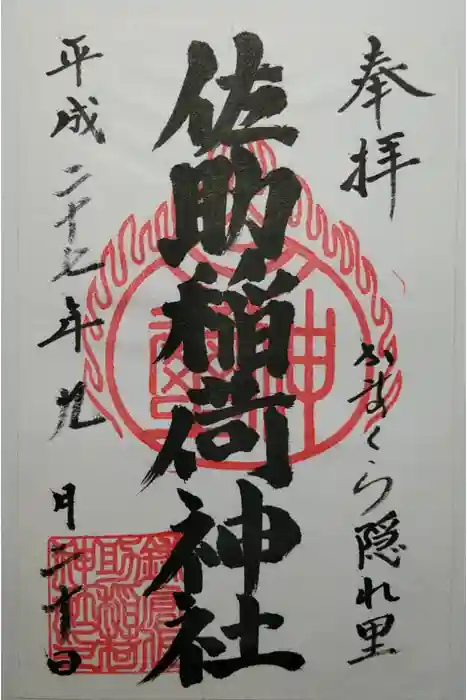 奉拝
かまくら隠れ里
佐助稲荷神社
平成二十七年九月二十日